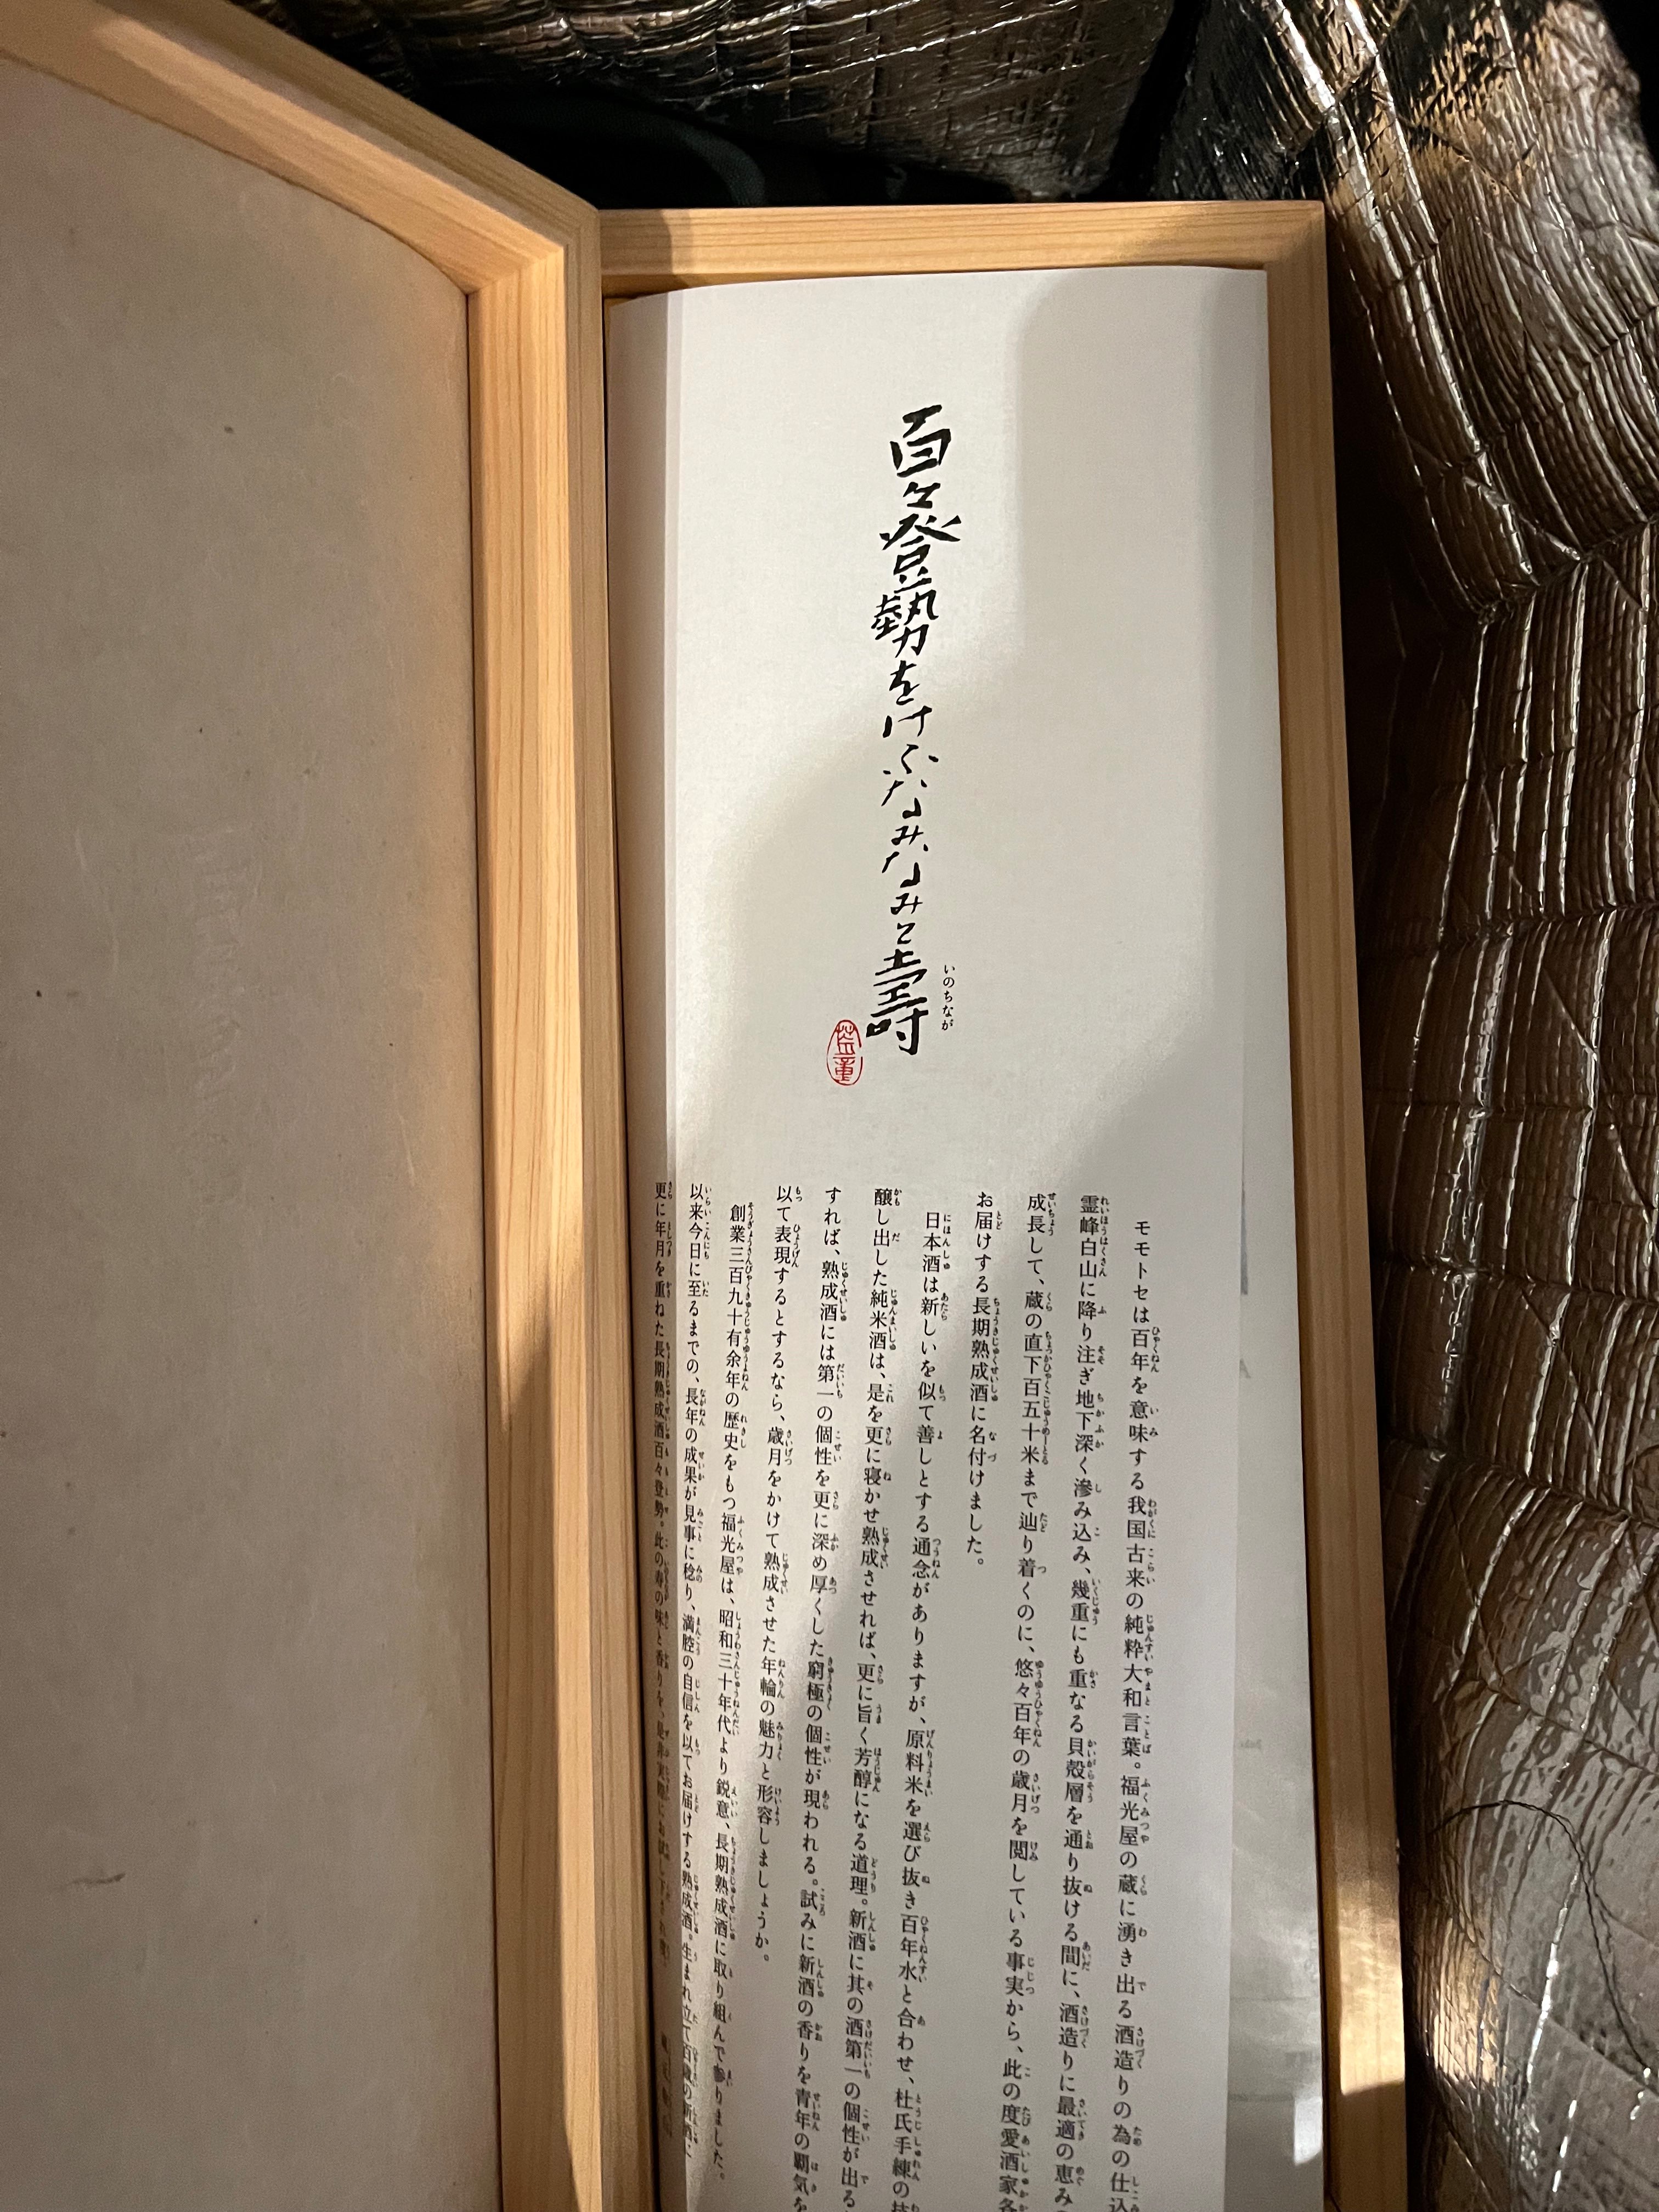 百々登勢をけふなみなみと壽
いのちなが
モモトセは百年を意味する我国古来の純粋大和言葉。福光屋の蔵に湧き出る酒造りの為の仕込
霊峰白山に降り注ぎ地下深く滲み込み、幾重にも重なる貝殻層を通り抜ける間に、酒造りに最適の恵み
成長して、蔵の直下百五十米まで辿り着くのに、悠々百年の歳月を閲している事実から、此の度愛酒家各
お届けする長期熟成酒に名付けました。
日本酒は新しいを似て善しとする通念がありますが、原料米を選び抜き百年水と合わせ、杜氏手練の技
醸し出した純米酒は、是を更に寝かせ熟成させれば、更に旨く芳醇になる道理。新酒に其の酒第一の個性が出る
すれば、熟成酒には第一の個性を更に深め厚くした窮極の個性が現われる。試みに新酒の香りを青年の覇気を
以て表現するとするなら、歳月をかけて熟成させた年輪の魅力と形容しましょうか。
創業三百九十有余年の歴史をもつ福光屋は、昭和三十年代より鋭意、長期熟成酒に取り組んで参りました。
以来今日に至るまでの、長年の成果が見事に稔り、満腔の自信を以てお届けする熟成酒。生まれ立て百歳の新酒に
更に年月を重ねた長期熟成酒百々登勢。此の寿の味と香りを、是非